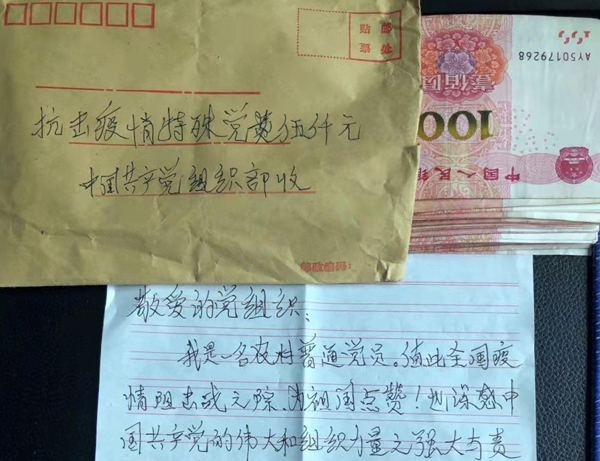 贴 邮
票 处
抗击疫情特殊党费伍仟元
中国共产党组织部收
邮政编码:
AY50179268
壹佰圆
100
中国人民银
敬爱的党组织:
我是一名农村普通党员。值此全国疫
情阻击战之际,为祖国点赞!也深感中
国共产党的伟大和组织力量之强大与责